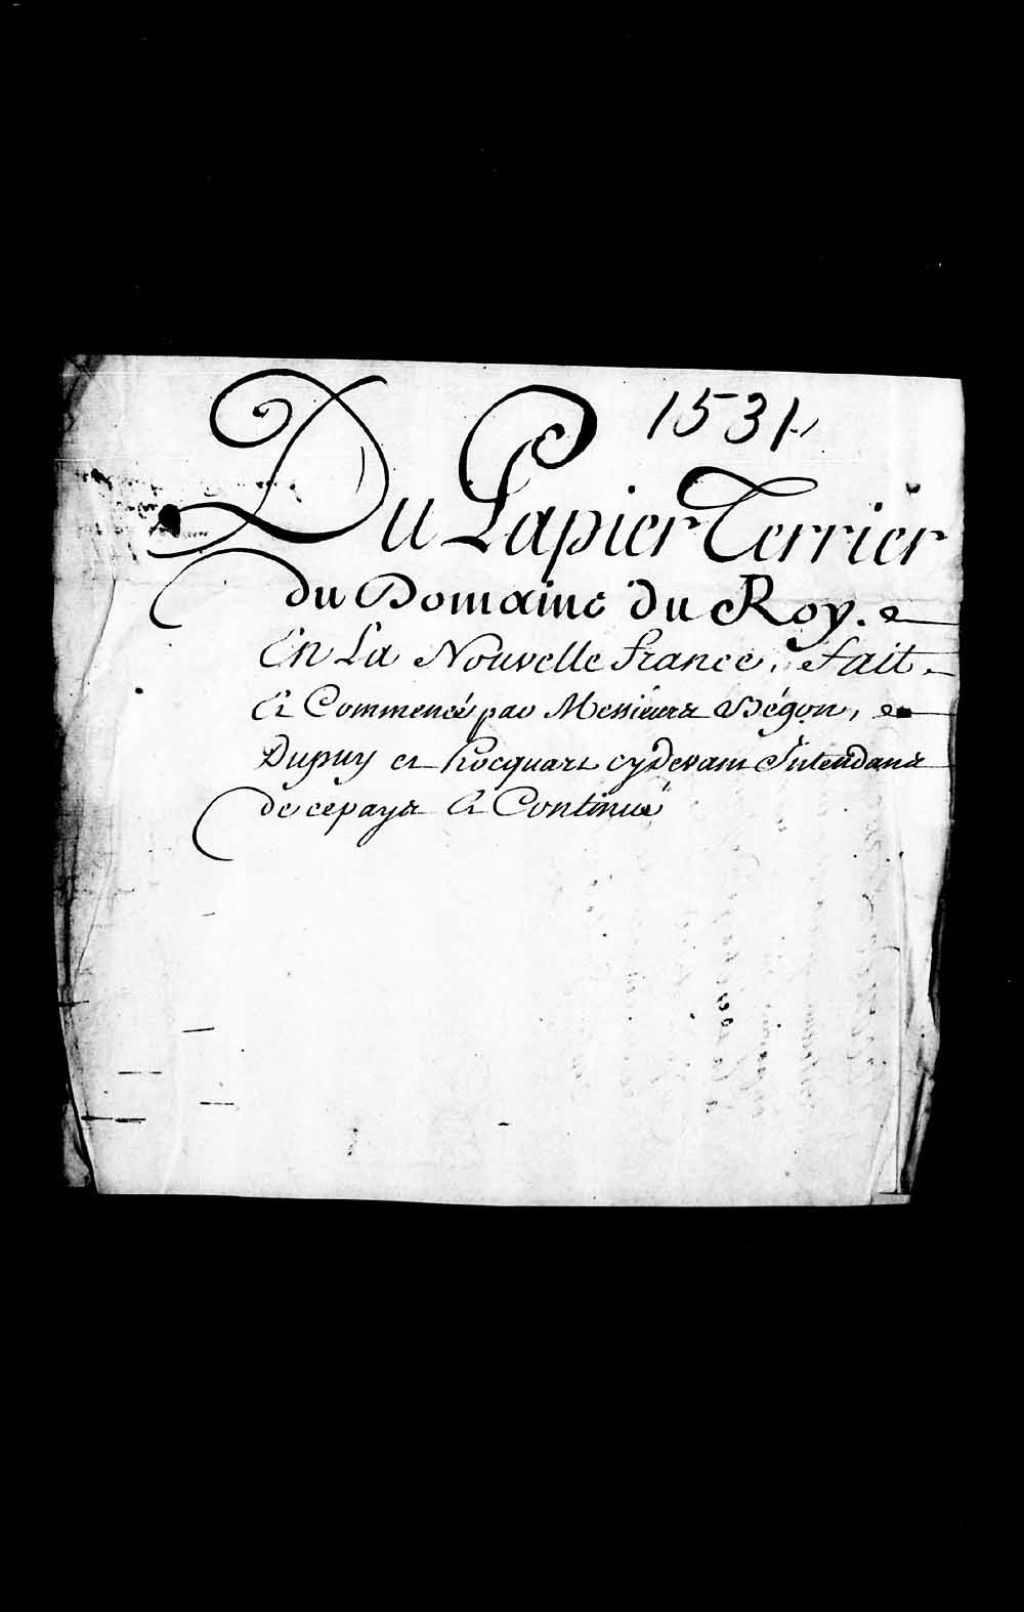 1531
Du Papier Terrier
du Domaine du Roy.
En La Nouvelle france, fait
Et Commencé par Messieurs Bégon,
Dupuy et hocquart cy devant Intendans
de ce pays Et Continué